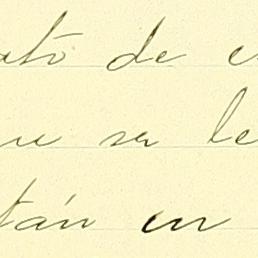 ató de e
ue se le
tán en